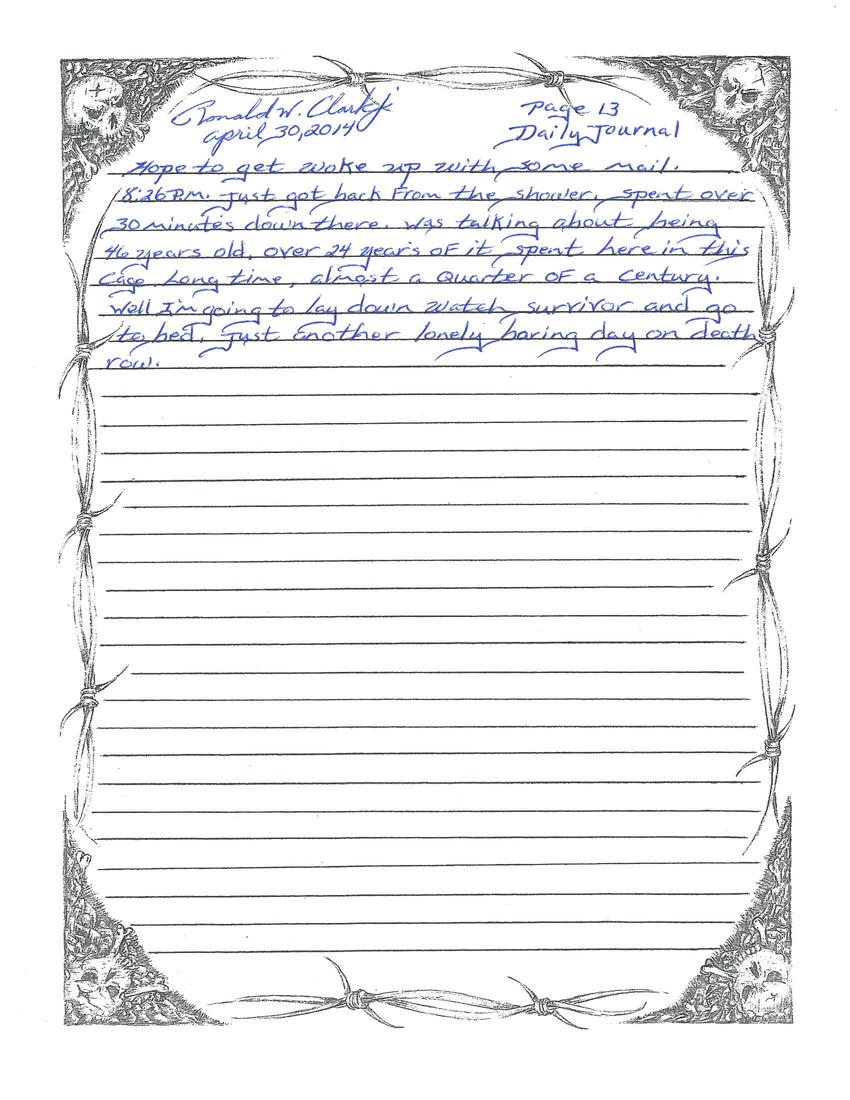 Ronald W. Clark Jr
Page 13
april 30, 2014
Daily Journal
Hope to get woke up with some mail.
8:26 P.M. Just got back From the shower, spent over
30 minutes down there. Was talking about being
46 years old, over 24 years OF it spent here in this
Cage. Long time, almost a Quarter OF a Century.
Well I'm going to lay down watch survivor and go
to bed. Just another lonely boring day on death
row.